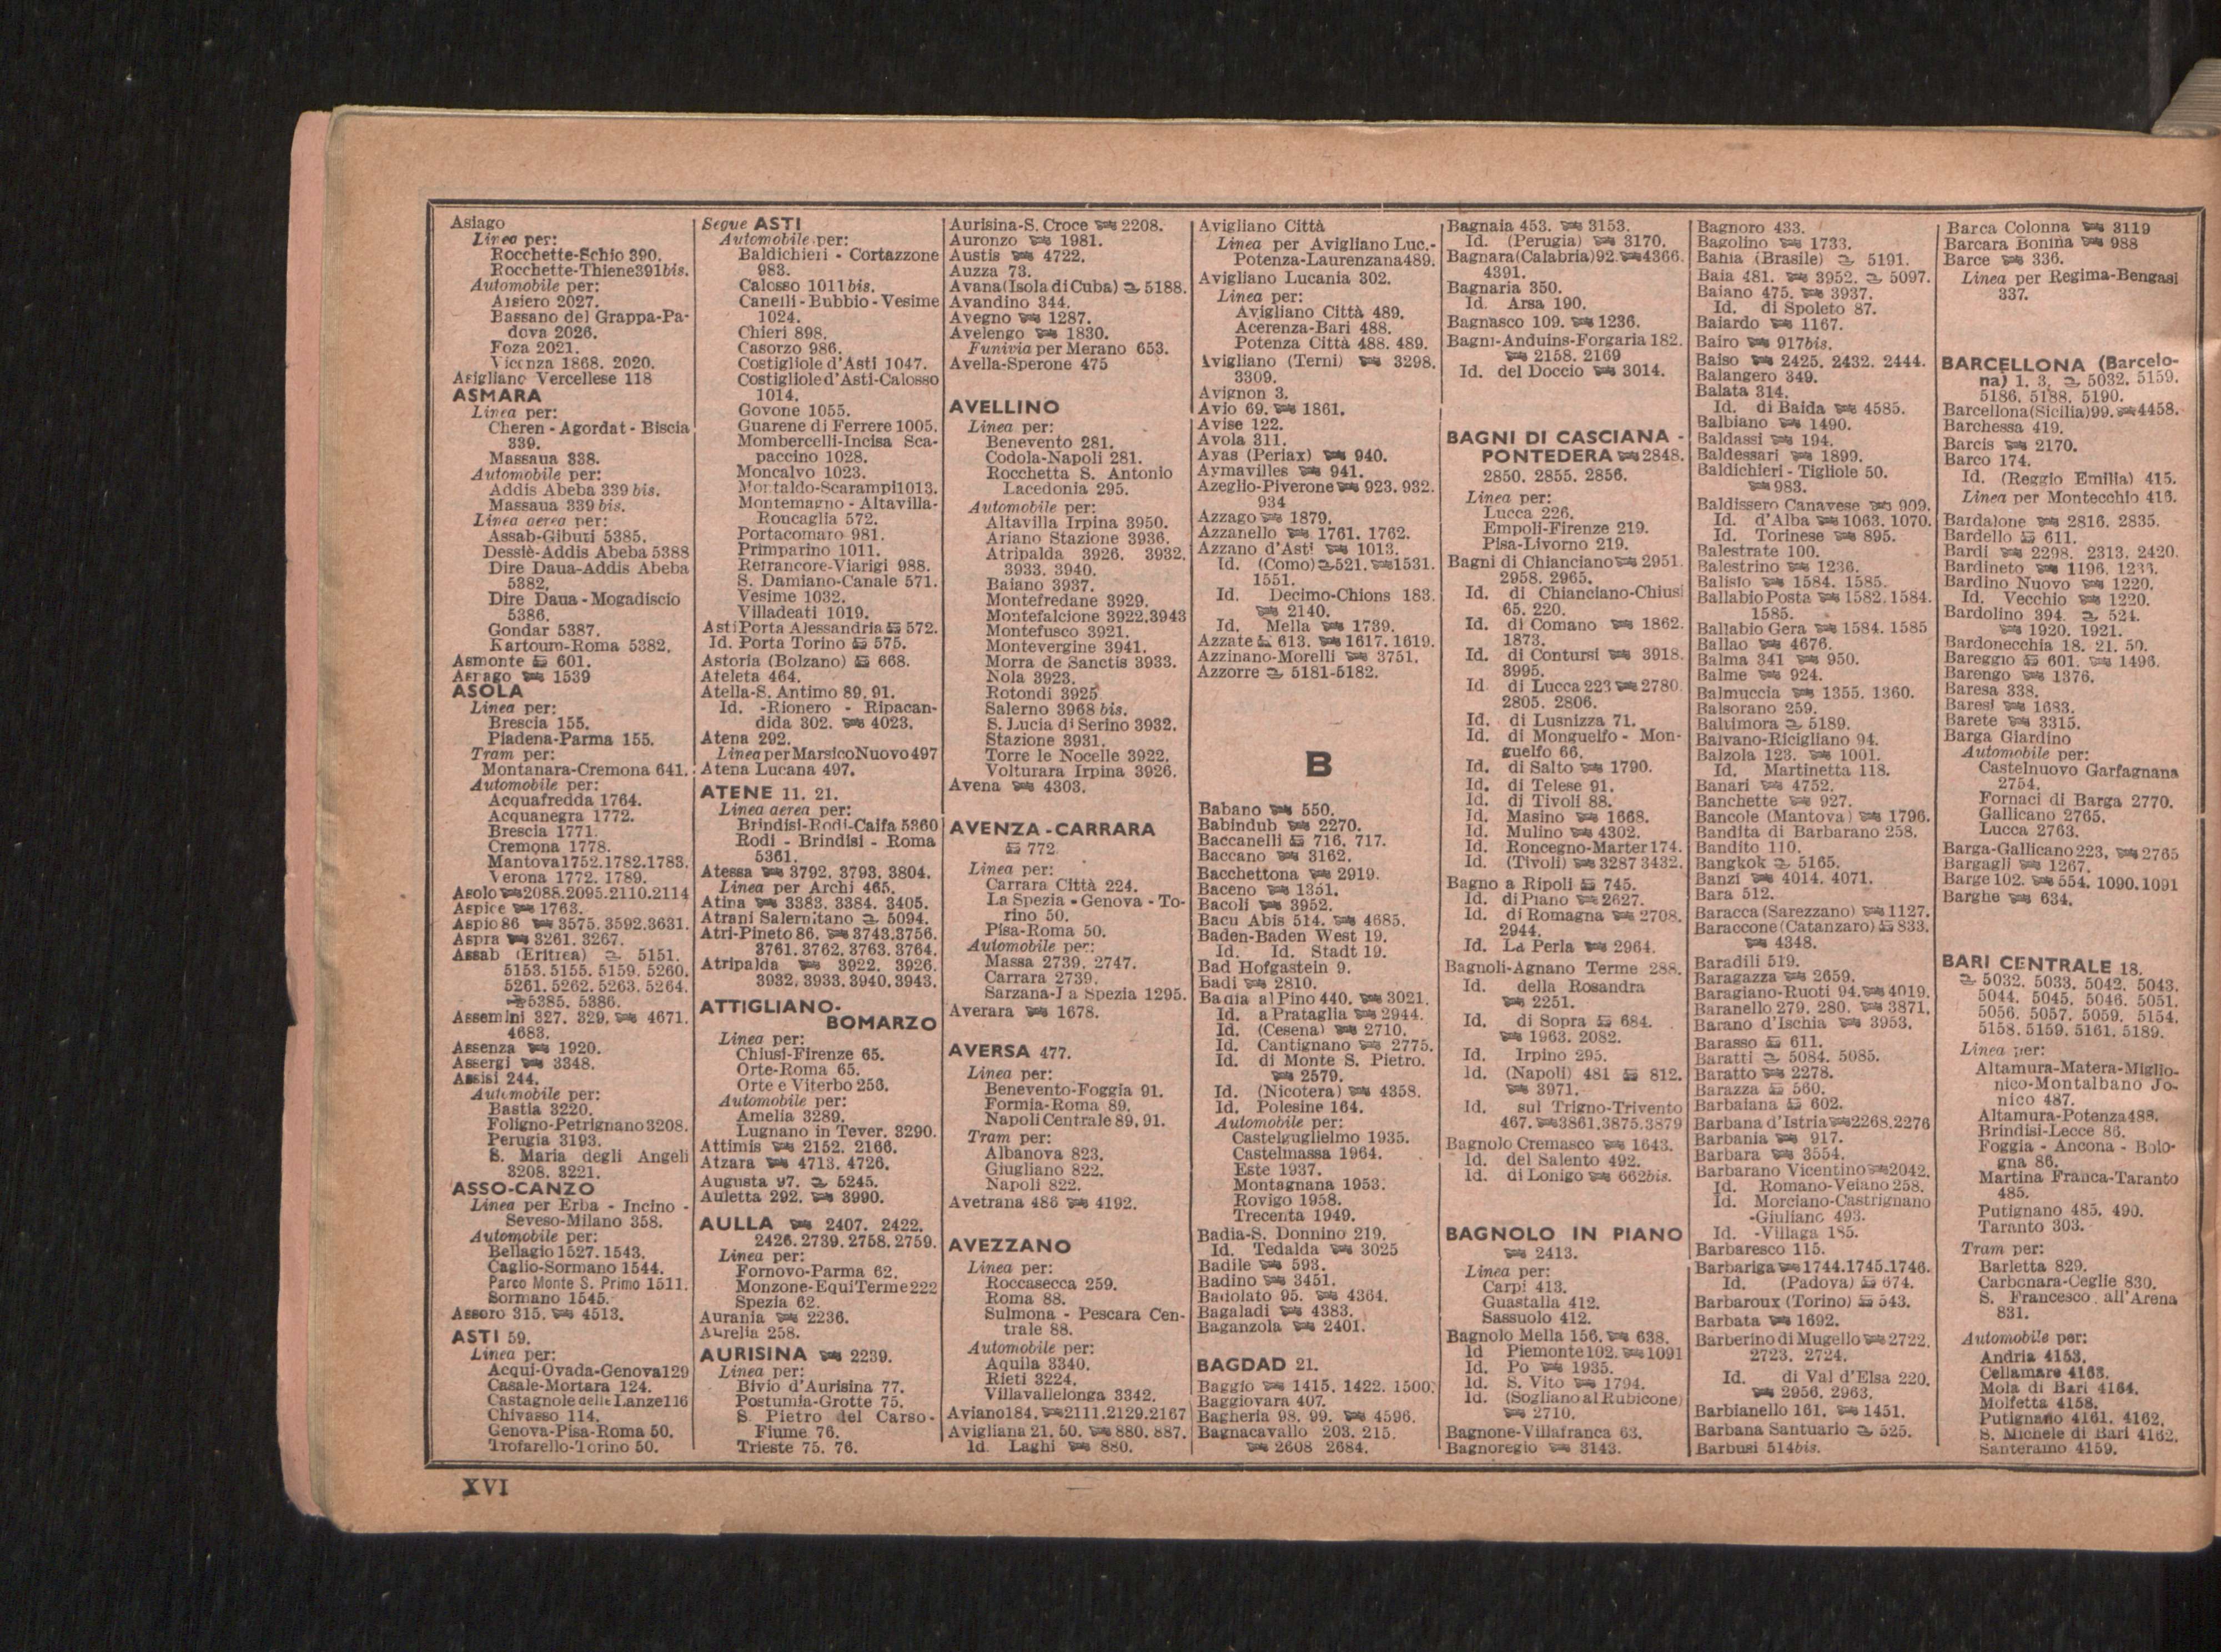 Asiago
Linea per:
Rocchette-Schio 390.
Rocchette-Thiene 391bis.
Automobile per:
Arsiero 2027.
Bassano del Grappa-Pa-
dova 2026.
Foza 2021.
Vicenza 1868. 2020.
Asigliano Vercellese 118
ASMARA
Linea per:
Cheren - Agordat - Biscia
339.
Massaua 338.
Automobile per:
Addis Abeba 339 bis.
Massaua 339 bis.
Linea aerea per:
Assab-Gibuti 5385.
Dessiè-Addis Abeba 5388
Dire Daua-Addis Abeba
5382.
Dire Daua - Mogadiscio
5386.
Gondar 5387.
Kartoum-Roma 5382.
Asmonte 601.
Asnago 1539
ASOLA
Linea per:
Brescia 155.
Piadena-Parma 155.
Tram per:
Montanara-Cremona 641.
Automobile per:
Acquafredda 1764.
Acquanegra 1772.
Brescia 1771.
Cremona 1778.
Mantova 1752. 1782. 1783.
Verona 1772. 1789.
Asolo 2088. 2095. 2110. 2114
Aspice 1763.
Aspio 86 3575. 3592. 3631.
Aspra 3261. 3267.
Assab (Eritrea) 5151.
5153. 5155. 5159. 5260.
5261. 5262. 5263. 5264.
5385. 5386.
Assemini 327. 329. 4671.
4683.
Assenza 1920.
Assergi 3348.
Assisi 244.
Automobile per:
Bastia 3220.
Foligno-Petrignano 3208.
Perugia 3193.
S. Maria degli Angeli
3208. 3221.
ASSO-CANZO
Linea per Erba - Incino -
Seveso-Milano 358.
Automobile per:
Bellagio 1527. 1543.
Caglio-Sormano 1544.
Parco Monte S. Primo 1511.
Sormano 1545.
Assoro 315. 4513.
ASTI 59.
Linea per:
Acqui-Ovada-Genova 129
Casale-Mortara 124.
Castagnole delle Lanze 116
Chivasso 114.
Genova-Pisa-Roma 50.
Trofarello-Torino 50.
Segue ASTI
Automobile per:
Baldichieri - Cortazzone
983.
Calosso 1011 bis.
Canelli - Bubbio - Vesime
1024.
Chieri 898.
Casorzo 986.
Costigliole d'Asti 1047.
Costigliole d'Asti-Calosso
1014.
Govone 1055.
Guarene di Ferrere 1005.
Mombercelli-Incisa Sca-
paccino 1028.
Moncalvo 1023.
Mortaldo-Scarampi 1013.
Montemagno - Altavilla-
Roncaglia 572.
Portacomaro 981.
Primparino 1011.
Refrancore-Viarigi 988.
S. Damiano-Canale 571.
Vesime 1032.
Villadeati 1019.
Asti Porta Alessandria 572.
Id. Porta Torino 575.
Astoria (Bolzano) 668.
Ateleta 464.
Atella-S. Antimo 89. 91.
Id. -Rionero - Ripacan-
dida 302. 4023.
Atena 292.
Linea per Marsico Nuovo 497
Atena Lucana 497.
ATENE 11. 21.
Linea aerea per:
Brindisi-Rodi-Caifa 5360
Rodi - Brindisi - Roma
5361.
Atessa 3792. 3793. 3804.
Linea per Archi 465.
Atina 3383. 3384. 3405.
Atrani Salernitano 5094.
Atri-Pineto 86. 3743. 3756.
3761. 3762. 3763. 3764.
Atripalda 3922. 3926.
3932. 3933. 3940. 3943.
ATTIGLIANO-
BOMARZO
Linea per:
Chiusi-Firenze 65.
Orte-Roma 65.
Orte e Viterbo 256.
Automobile per:
Amelia 3289.
Lugnano in Tever. 3290.
Attimis 2152. 2166.
Atzara 4713. 4726.
Augusta 97. 5245.
Auletta 292. 3990.
AULLA 2407. 2422.
2426. 2739. 2758. 2759.
Linea per:
Fornovo-Parma 62.
Monzone-Equi Terme 222
Spezia 62.
Aurania 2236.
Aurelia 258.
AURISINA 2239.
Linea per:
Bivio d'Aurisina 77.
Postumia-Grotte 75.
S. Pietro del Carso -
Fiume 76.
Trieste 75. 76.
Aurisina-S. Croce 2208.
Auronzo 1981.
Austis 4722.
Auzza 73.
Avana (Isola di Cuba) 5188.
Avandino 344.
Avegno 1287.
Avelengo 1830.
Funivia per Merano 653.
Avella-Sperone 475
AVELLINO
Linea per:
Benevento 281.
Codola-Napoli 281.
Rocchetta S. Antonio
Lacedonia 295.
Automobile per:
Altavilla Irpina 3950.
Ariano Stazione 3936.
Atripalda 3926. 3932.
3933. 3940.
Baiano 3937.
Montefredane 3929.
Montefalcione 3922. 3943
Montefusco 3921.
Montevergine 3941.
Morra de Sanctis 3933.
Nola 3923.
Rotondi 3925.
Salerno 3968 bis.
S. Lucia di Serino 3932.
Stazione 3931.
Torre le Nocelle 3922.
Volturara Irpina 3926.
Avena 4303.
AVENZA - CARRARA
772.
Linea per:
Carrara Città 224.
La Spezia - Genova - To-
rino 50.
Pisa-Roma 50.
Automobile per:
Massa 2739. 2747.
Carrara 2739.
Sarzana-La Spezia 1295.
Averara 1678.
AVERSA 477.
Linea per:
Benevento-Foggia 91.
Formia-Roma 89.
Napoli Centrale 89. 91.
Tram per:
Albanova 823.
Giugliano 822.
Napoli 822.
Avetrana 486 4192.
AVEZZANO
Linea per:
Roccasecca 259.
Roma 88.
Sulmona - Pescara Cen-
trale 88.
Automobile per:
Aquila 3340.
Rieti 3224.
Villavallelonga 3342.
Aviano 184. 2111. 2129. 2167
Avigliana 21. 50. 880. 887.
Id. Laghi 880.
Avigliano Città
Linea per Avigliano Luc.-
Potenza-Laurenzana 489.
Avigliano Lucania 302.
Linea per:
Avigliano Città 489.
Acerenza-Bari 488.
Potenza Città 488. 489.
Avigliano (Terni) 3298.
3309.
Avignon 3.
Avio 69. 1861.
Avise 122.
Avola 311.
Ayas (Periax) 940.
Aymavilles 941.
Azeglio-Piverone 923. 932.
934
Azzago 1879.
Azzanello 1761. 1762.
Azzano d'Asti 1013.
Id. (Como) 521. 1531.
1551.
Id. Decimo-Chions 183.
2140.
Id. Mella 1739.
Azzate 613. 1617. 1619.
Azzinano-Morelli 3751.
Azzorre 5181-5182.
B
Babano 550.
Babindub 2270.
Baccanelli 716. 717.
Baccano 3162.
Bacchettona 2919.
Baceno 1351.
Bacoli 3952.
Bacu Abis 514. 4685.
Baden-Baden West 19.
Id. Id. Stadt 19.
Bad Hofgastein 9.
Badi 2810.
Badia al Pino 440. 3021.
Id. a Prataglia 2944.
Id. (Cesena) 2710.
Id. Cantignano 2775.
Id. di Monte S. Pietro.
2579.
Id. (Nicotera) 4358.
Id. Polesine 164.
Automobile per:
Castelguglielmo 1935.
Castelmassa 1964.
Este 1937.
Montagnana 1953.
Rovigo 1958.
Trecenta 1949.
Badia-S. Donnino 219.
Id. Tedalda 3025
Badile 593.
Badino 3451.
Badolato 95. 4364.
Bagaladi 4383.
Baganzola 2401.
BAGDAD 21.
Baggio 1415. 1422. 1500.
Baggiovara 407.
Bagheria 98. 99. 4596.
Bagnacavallo 203. 215.
2608 2684.
Bagnaia 453. 3153.
Id. (Perugia) 3170.
Bagnara (Calabria) 92. 4366.
4391.
Bagnaria 350.
Id. Arsa 190.
Bagnasco 109. 1236.
Bagni-Anduins-Forgaria 182.
2158. 2169
Id. del Doccio 3014.
BAGNI DI CASCIANA -
PONTEDERA 2848.
2850. 2855. 2856.
Linea per:
Lucca 226.
Empoli-Firenze 219.
Pisa-Livorno 219.
Bagni di Chianciano 2951.
2958. 2965.
Id. di Chianciano-Chiusi
65. 220.
Id. di Comano 1862.
1873.
Id. di Contursi 3918.
3995.
Id. di Lucca 223 2780.
2805. 2806.
Id. di Lusnizza 71.
Id. di Monguelfo - Mon-
guelfo 66.
Id. di Salto 1790.
Id. di Telese 91.
Id. di Tivoli 88.
Id. Masino 1668.
Id. Mulino 4302.
Id. Roncegno-Marter 174.
Id. (Tivoli) 3287 3432.
Bagno a Ripoli 745.
Id. di Piano 2627.
Id. di Romagna 2708.
2944.
Id. La Perla 2964.
Bagnoli-Agnano Terme 288.
Id. della Rosandra
2251.
Id. di Sopra 684.
1963. 2082.
Id. Irpino 295.
Id. (Napoli) 481 812.
3971.
Id. sul Trigno-Trivento
467. 3861. 3875. 3879
Bagnolo Cremasco 1643.
Id. del Salento 492.
Id. di Lonigo 662bis.
BAGNOLO IN PIANO
2413.
Linea per:
Carpi 413.
Guastalla 412.
Sassuolo 412.
Bagnolo Mella 156. 638.
Id Piemonte 102. 1091
Id. Po 1935.
Id. S. Vito 1794.
Id. (Sogliano al Rubicone)
2710.
Bagnone-Villafranca 63.
Bagnoregio 3143.
Bagnoro 433.
Bagolino 1733.
Bahia (Brasile) 5191.
Baia 481. 3952. 5097.
Baiano 475. 3937.
Id. di Spoleto 87.
Baiardo 1167.
Bairo 917bis.
Baiso 2425. 2432. 2444.
Balangero 349.
Balata 314.
Id. di Baida 4585.
Balbiano 1490.
Baldassi 194.
Baldessari 1899.
Baldichieri - Tigliole 50.
983.
Baldissero Canavese 909.
Id. d'Alba 1063. 1070.
Id. Torinese 895.
Balestrate 100.
Balestrino 1236.
Balisio 1584. 1585.
Ballabio Posta 1582. 1584.
1585.
Ballabio Gera 1584. 1585
Ballao 4676.
Balma 341 950.
Balme 924.
Balmuccia 1355. 1360.
Balsorano 259.
Baltimora 5189.
Balvano-Ricigliano 94.
Balzola 123. 1001.
Id. Martinetta 118.
Banari 4752.
Banchette 927.
Bancole (Mantova) 1796.
Bandita di Barbarano 258.
Bandito 110.
Bangkok 5165.
Banzi 4014. 4071.
Bara 512.
Baracca (Sarezzano) 1127.
Baraccone (Catanzaro) 833.
4348.
Baradili 519.
Baragazza 2659.
Baragiano-Ruoti 94. 4019.
Baranello 279. 280. 3871.
Barano d'Ischia 3953.
Barasso 611.
Baratti 5084. 5085.
Baratto 2278.
Barazza 560.
Barbaiana 602.
Barbana d'Istria 2268. 2276
Barbania 917.
Barbara 3554.
Barbarano Vicentino 2042.
Id. Romano-Veiano 258.
Id. Morciano-Castrignano
-Giuliano 493.
Id. -Villaga 185.
Barbaresco 115.
Barbariga 1744. 1745. 1746.
Id. (Padova) 674.
Barbaroux (Torino) 543.
Barbata 1692.
Barberino di Mugello 2722.
2723. 2724.
Id. di Val d'Elsa 220.
2956. 2963.
Barbianello 161. 1451.
Barbana Santuario 525.
Barbusi 514bis.
Barca Colonna 3119
Barcara Bonina 988
Barce 336.
Linea per Regima-Bengasi
337.
BARCELLONA (Barcelo-
na) 1. 3. 5032. 5159.
5186. 5188. 5190.
Barcellona (Sicilia) 99. 4458.
Barchessa 419.
Barcis 2170.
Barco 174.
Id. (Reggio Emilia) 415.
Linea per Montecchio 416.
Bardalone 2816. 2835.
Bardello 611.
Bardi 2298. 2313. 2420.
Bardineto 1196. 1233.
Bardino Nuovo 1220.
Id. Vecchio 1220.
Bardolino 394. 524.
1920. 1921.
Bardonecchia 18. 21. 50.
Bareggio 601. 1496.
Barengo 1376.
Baresa 338.
Baresi 1683.
Barete 3315.
Barga Giardino
Automobile per:
Castelnuovo Garfagnana
2754.
Fornaci di Barga 2770.
Gallicano 2765.
Lucca 2763.
Barga-Gallicano 223. 2765
Bargagli 1267.
Barge 102. 554. 1090. 1091
Barghe 634.
BARI CENTRALE 18.
5032. 5033. 5042. 5043.
5044. 5045. 5046. 5051.
5056. 5057. 5059. 5154.
5158. 5159. 5161. 5189.
Linea per:
Altamura-Matera-Miglio-
nico-Montalbano Jo-
nico 487.
Altamura-Potenza 488.
Brindisi-Lecce 86.
Foggia - Ancona - Bolo-
gna 86.
Martina Franca-Taranto
485.
Putignano 485. 490.
Taranto 303.
Tram per:
Barletta 829.
Carbonara-Ceglie 830.
S. Francesco all'Arena
831.
Automobile per:
Andria 4153.
Cellamare 4163.
Mola di Bari 4164.
Molfetta 4158.
Putignano 4161. 4162.
S. Michele di Bari 4162.
Santeramo 4159.
XVI